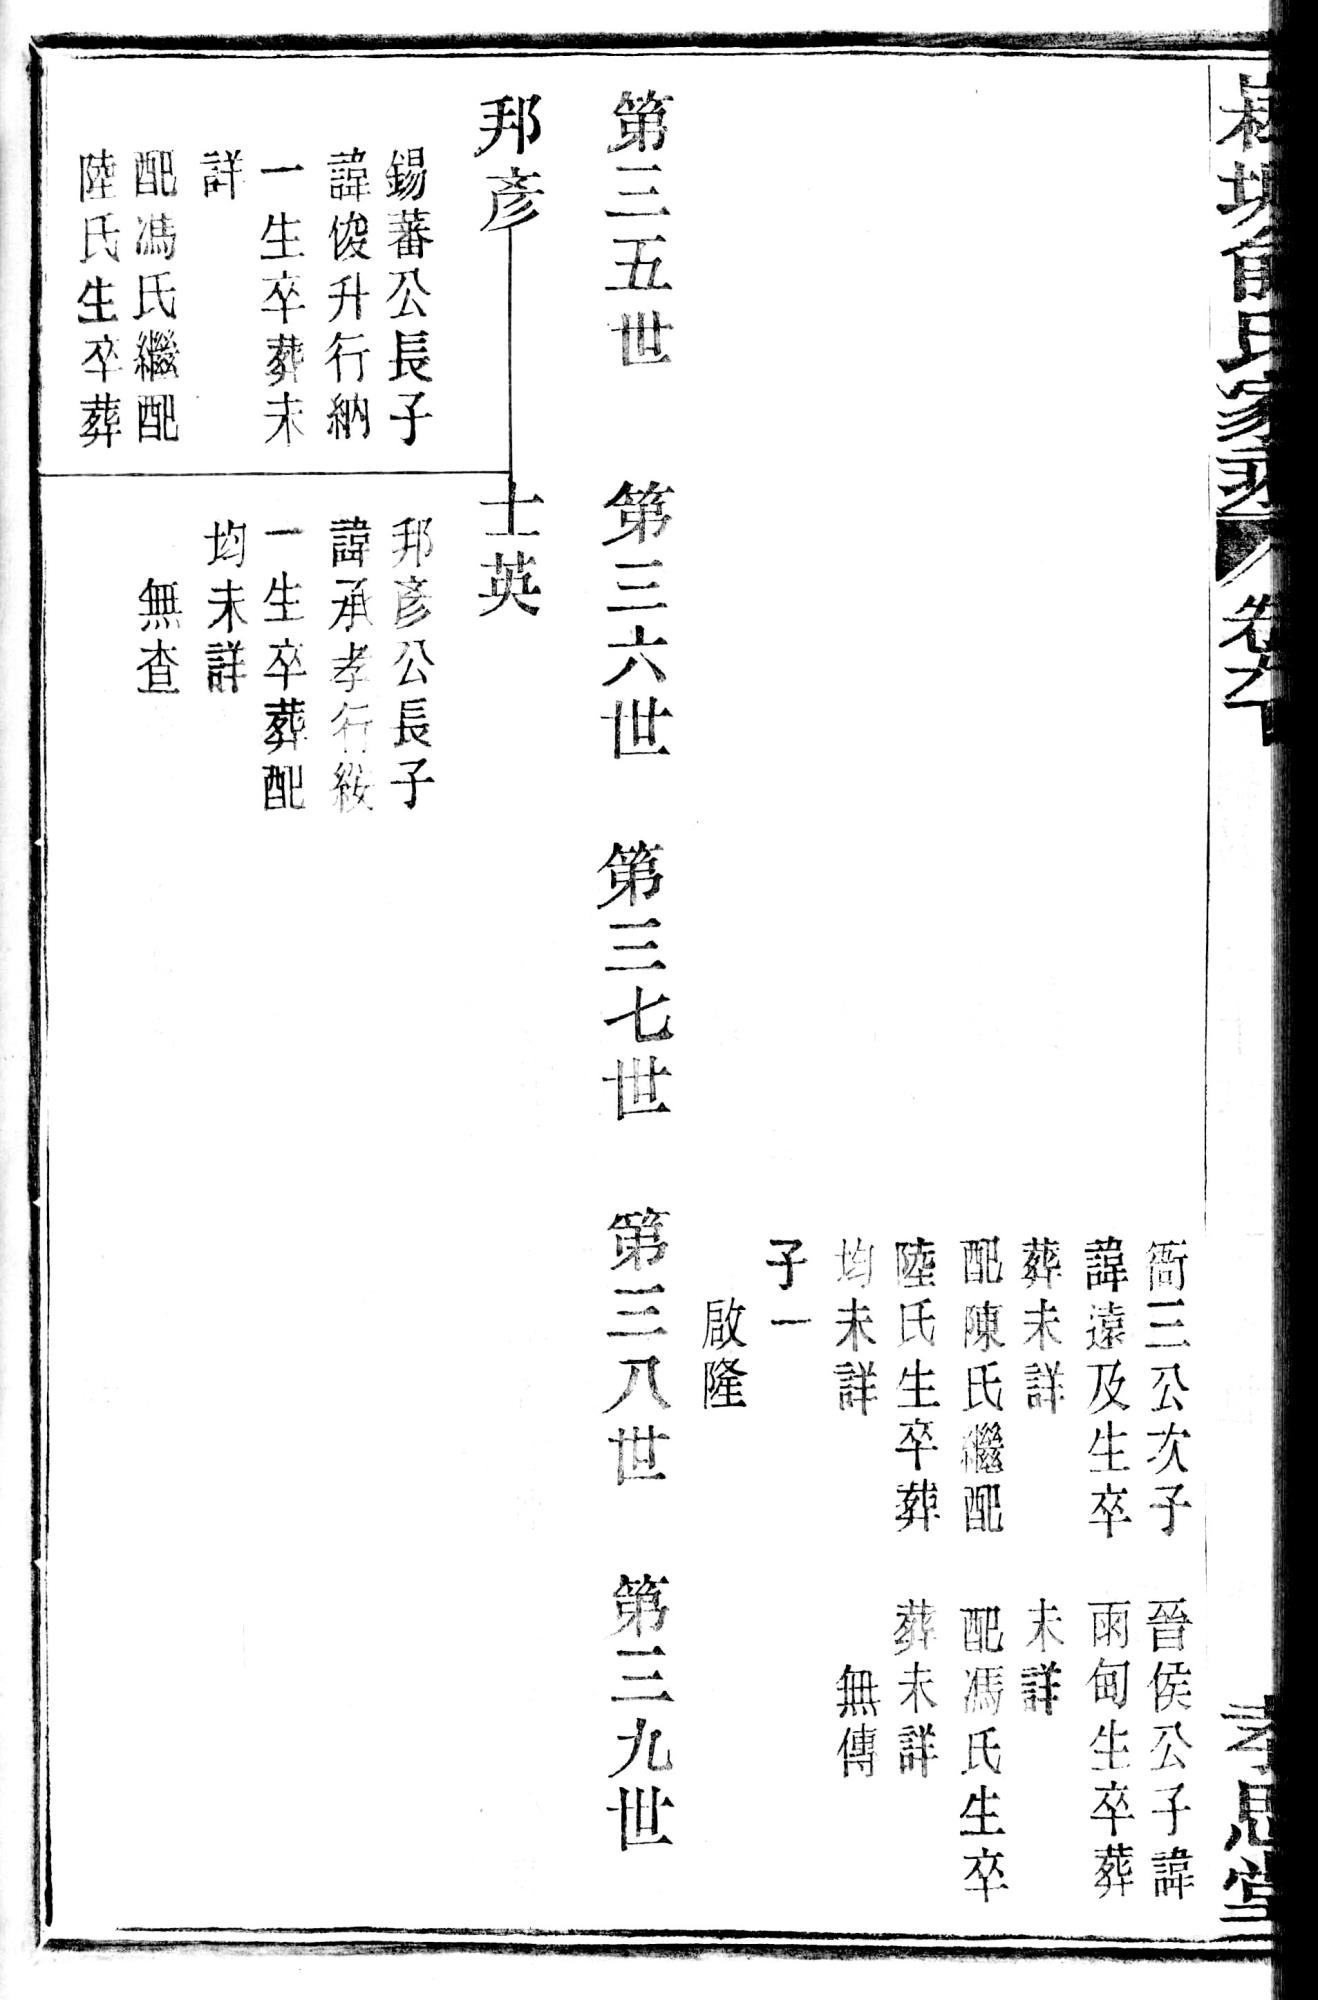 俞氏家乘
卷六
孝思堂
衙三公次子
諱遠及生卒
葬未詳
配陳氏繼配
陸氏生卒葬
均未詳
子一
啟隆
晉侯公子諱
雨甸生卒葬
未詳
配馮氏生卒
葬未詳
無傳
第三五世
第三六世
第三七世
第三八世
第三九世
邦彥
錫蕃公長子
諱俊升行納
一生卒葬未
詳
配馮氏繼配
陸氏生卒葬
士英
邦彥公長子
諱承孝行
一生卒葬配
均未詳
無查